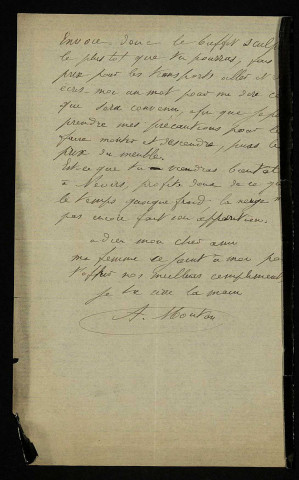 Envoie donc le buffet sculp
le plus tôt que tu pourras, fais
prix pour les transports aller et
écris-moi un mot pour me dire ce
que sera convenu, afin que je p
prendre mes précautions pour le
faire monter et descendre, puis le
prix du meuble.
Est-ce que tu viendras bientôt
à Nevers, profite donc de ce q
le temps quoique froid la neige n
pas encore fait son apparition.
adieu mon cher ami
ma femme se joint à moi po
t'offrir nos meilleurs compliments
je te serre la main
A. Mouton